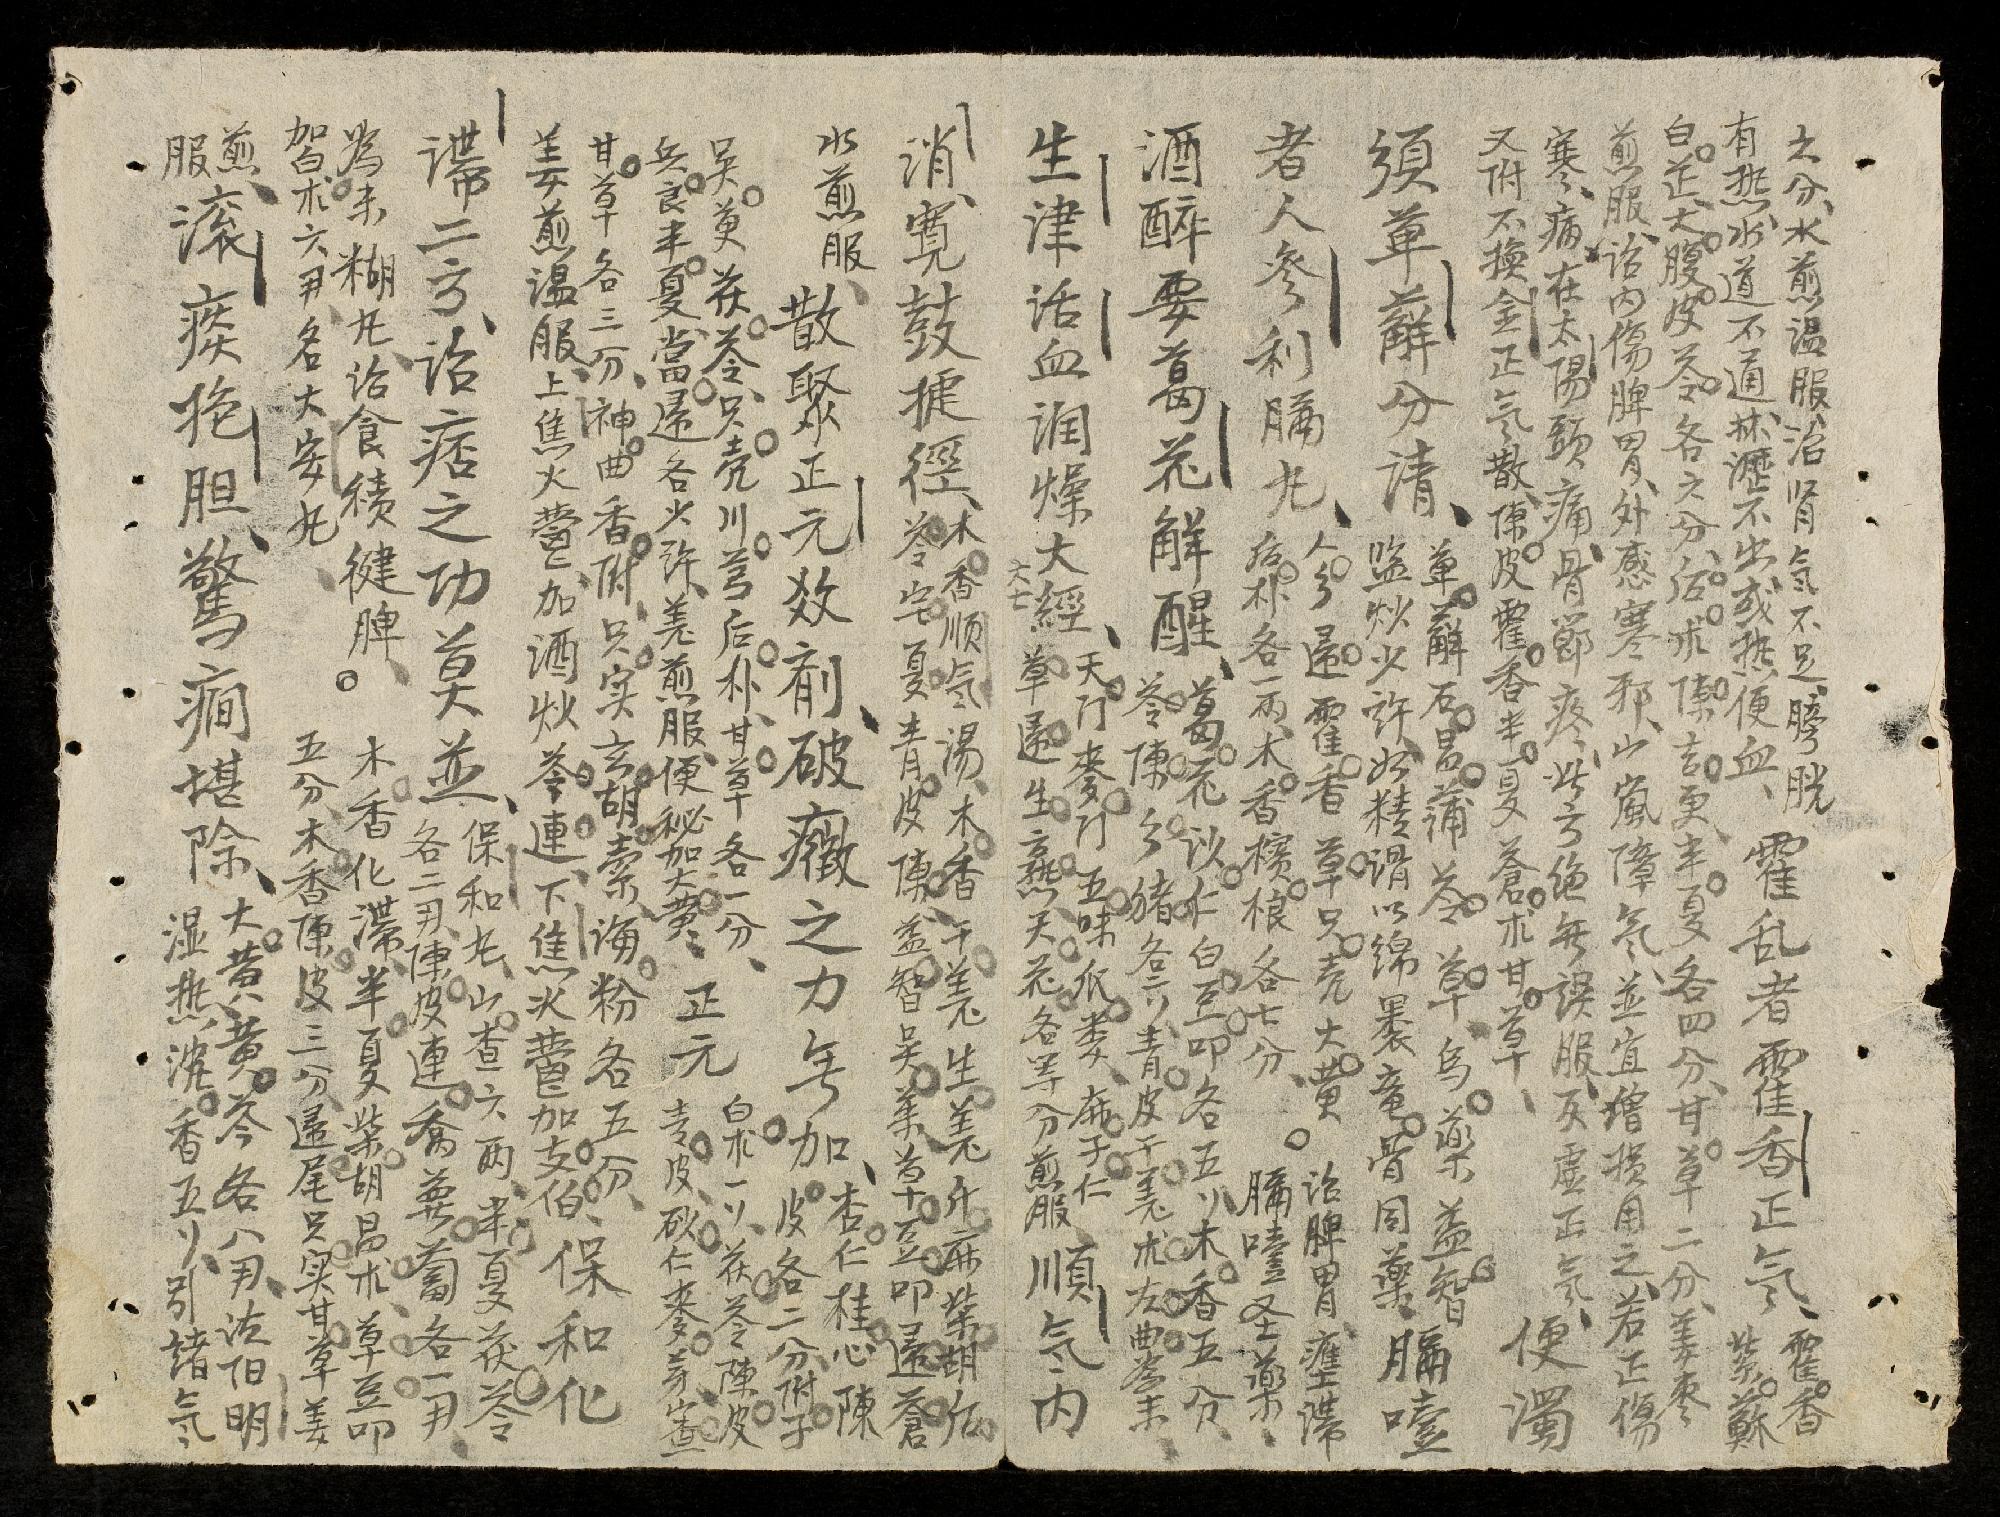 六分、水煎温服、治肾氣不足、膀胱
有热、水道不通、淋瀝不出或热便血、
霍乱者霍香正气、霍香
紫蘇
白芷、大腹皮苓各六分、后朴陳吉更半夏各四分、甘草二分、姜枣
煎服、治内傷脾胃、外感寒邪、山嵐障气、並宜増损用之、若正傷
寒、病在太陽頭痛骨節疼、此方绝無误服、反虚正气、便濁
又附不換金正气散、陳皮霍香半夏蒼朮甘草、
須萆薢分清、萆薢石昌蒲苓草乌藥益智
盐炒少許如精滑以绵裹竜骨同藥、膈噎
者人参利膈丸、人参歸霍香草只壳大黄
后朴各一兩、木香槟榔各七分、
治脾胃壅滞
膈噎圣藥、
酒醉要葛花解醒、葛花砂仁白豆叩各五リ木香五分、
苓陳参猪各二リ青皮干羌朮左曲為末、
生津活血润燥大經、天门麥门五味爪蒌麻子仁
草歸生熟天花各等分煎服
順气内
消、寛鼓捷徑、木香順气湯、木香干羌生羌升麻柴胡后
苓宅夏青皮陳益智吴茱草豆叩歸蒼
水煎服、散聚正元效剤、破癥之力無加、杏仁桂心陳
皮各二分附子
吴萸茯苓只壳川芎后朴甘草各一分、
兵良半夏當歸各火許、羌煎服、便秘加大黄、
正元
白朮一リ、茯苓陳皮
青皮砂仁麥芽查
甘草各三分、神曲香附只实玄胡索海粉各五分、保和化
姜煎温服、上焦火鬱加酒炒芩連、下焦火鬱加支伯、
滞二方、治痞之功莫並、保和丸、山查六兩、半夏茯苓
各二刄陳皮連喬蔞蔔各一刄
為末糊丸、治食績健脾。木香化滞、半夏柴胡昌朮、草豆叩
加白朮六刄、名大安丸、五分、木香陳皮三分、歸尾只实甘草姜
煎、
服、
滚痰挽胆、驚癇堪除、大黄黄芩各八刄、沽阳明
湿热、沉香五リ、引諸气